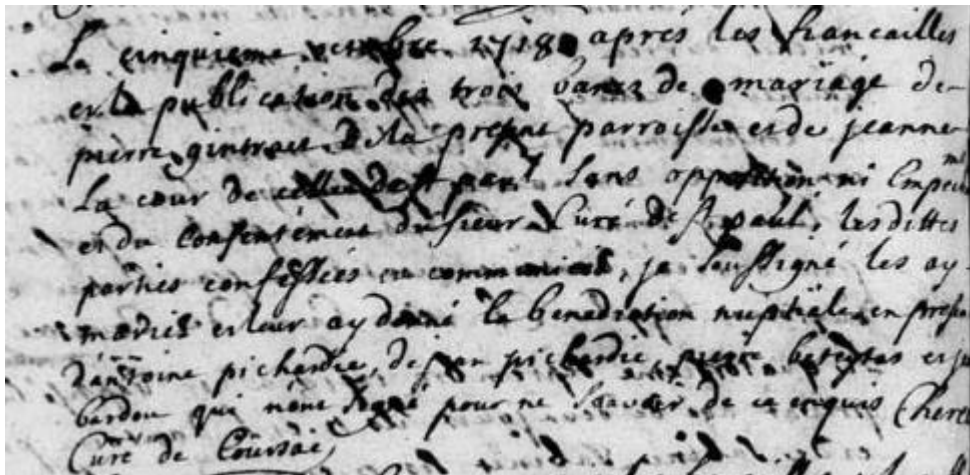 Le cinquieme octobre 1718 apres les fiancailles
et la publication des trois bancs de mariage de
pierre gintrait de la presnt parroisse et de jeanne
La cour de celle de st paul sans opposition ni Empe
et du Consentement du sieur Curé de st paul, lesdittes
parties confessées et communiees, je soussigné les ay
mariés et leur ay donné la benediction nuptiale en prese
d'antoine pichardie, de jean pichardie, pierre et
bardou qui n'ont signé pour ne scavoir de ce enquis
Curé de Coursac